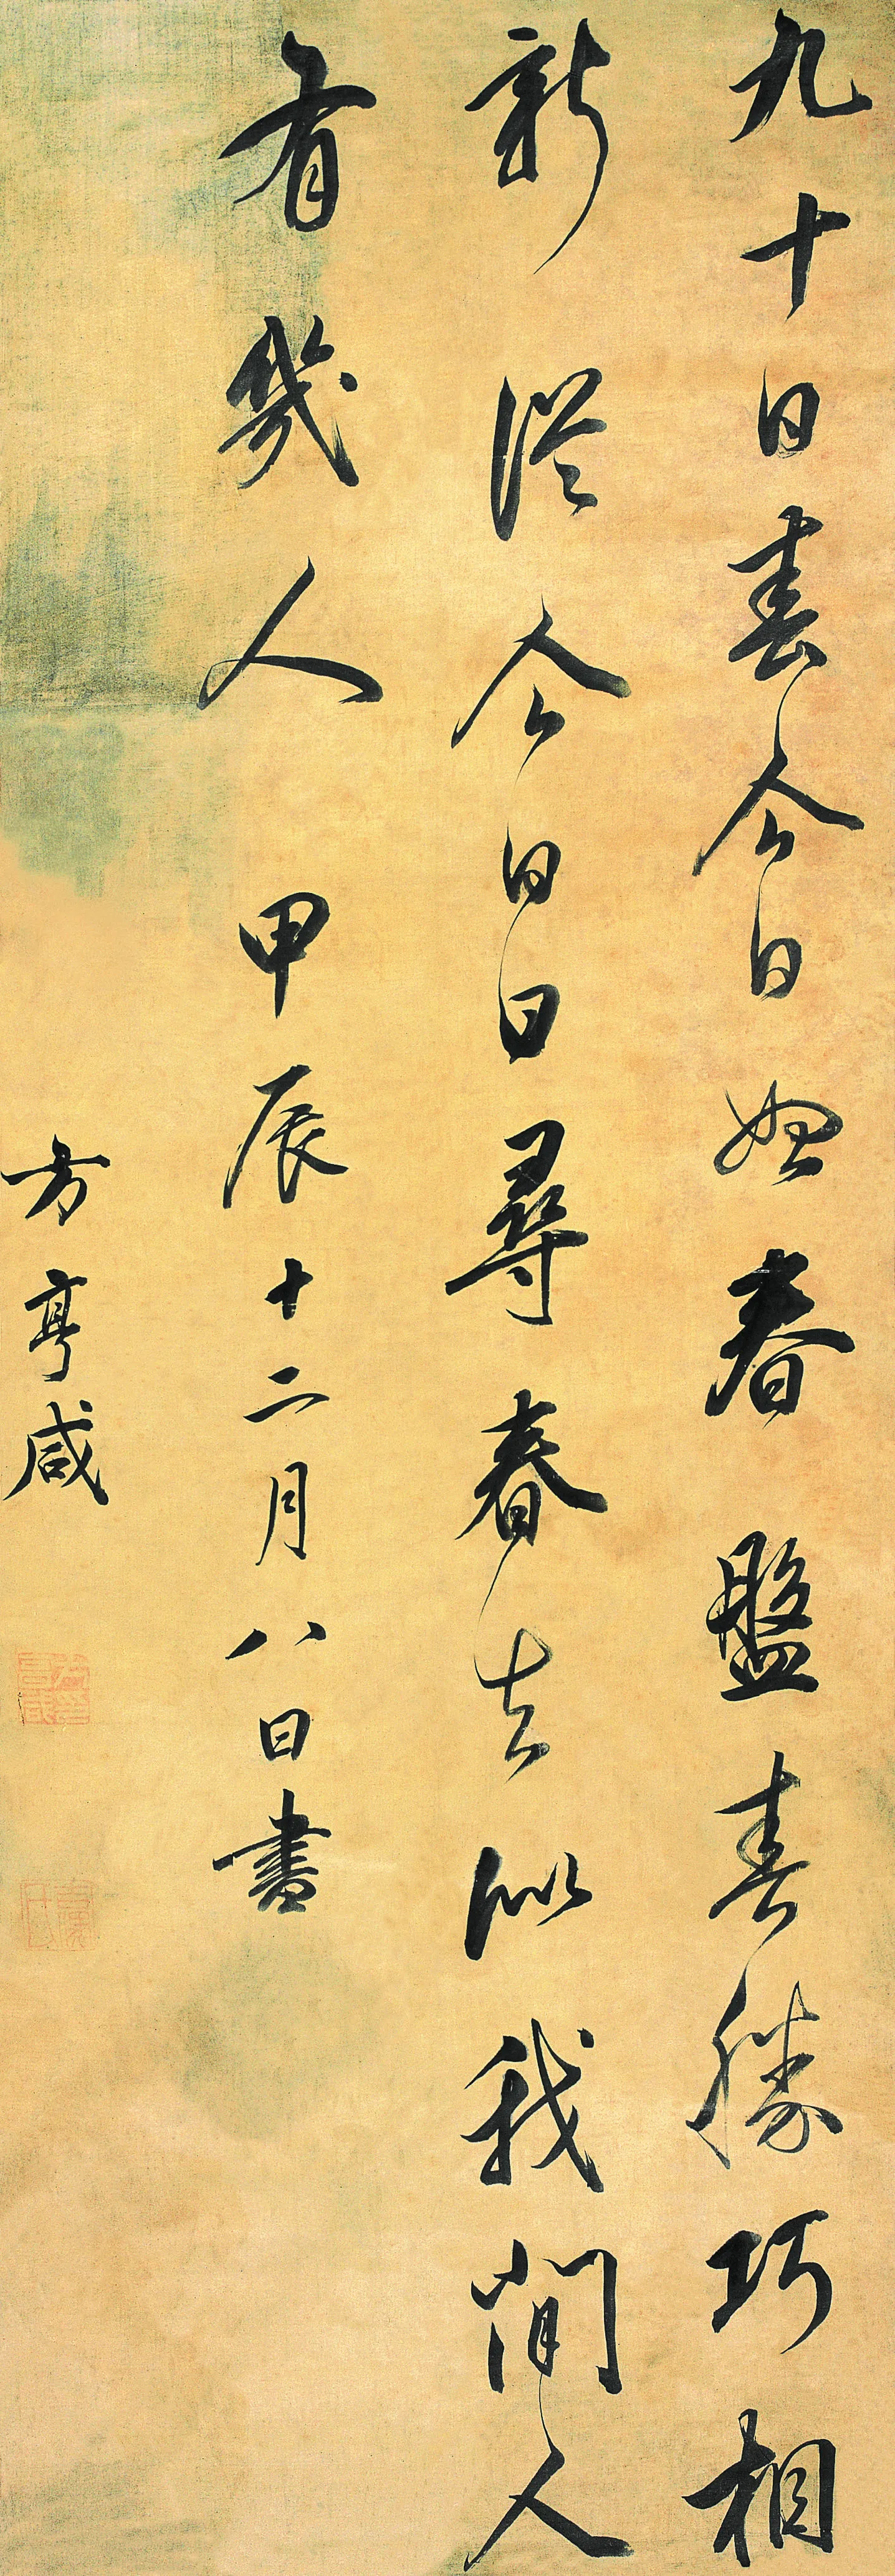 九十日春今日始春盤春勝巧相
新從今日日尋春去似我閒人
有幾人甲辰十二月八日書
方亨咸